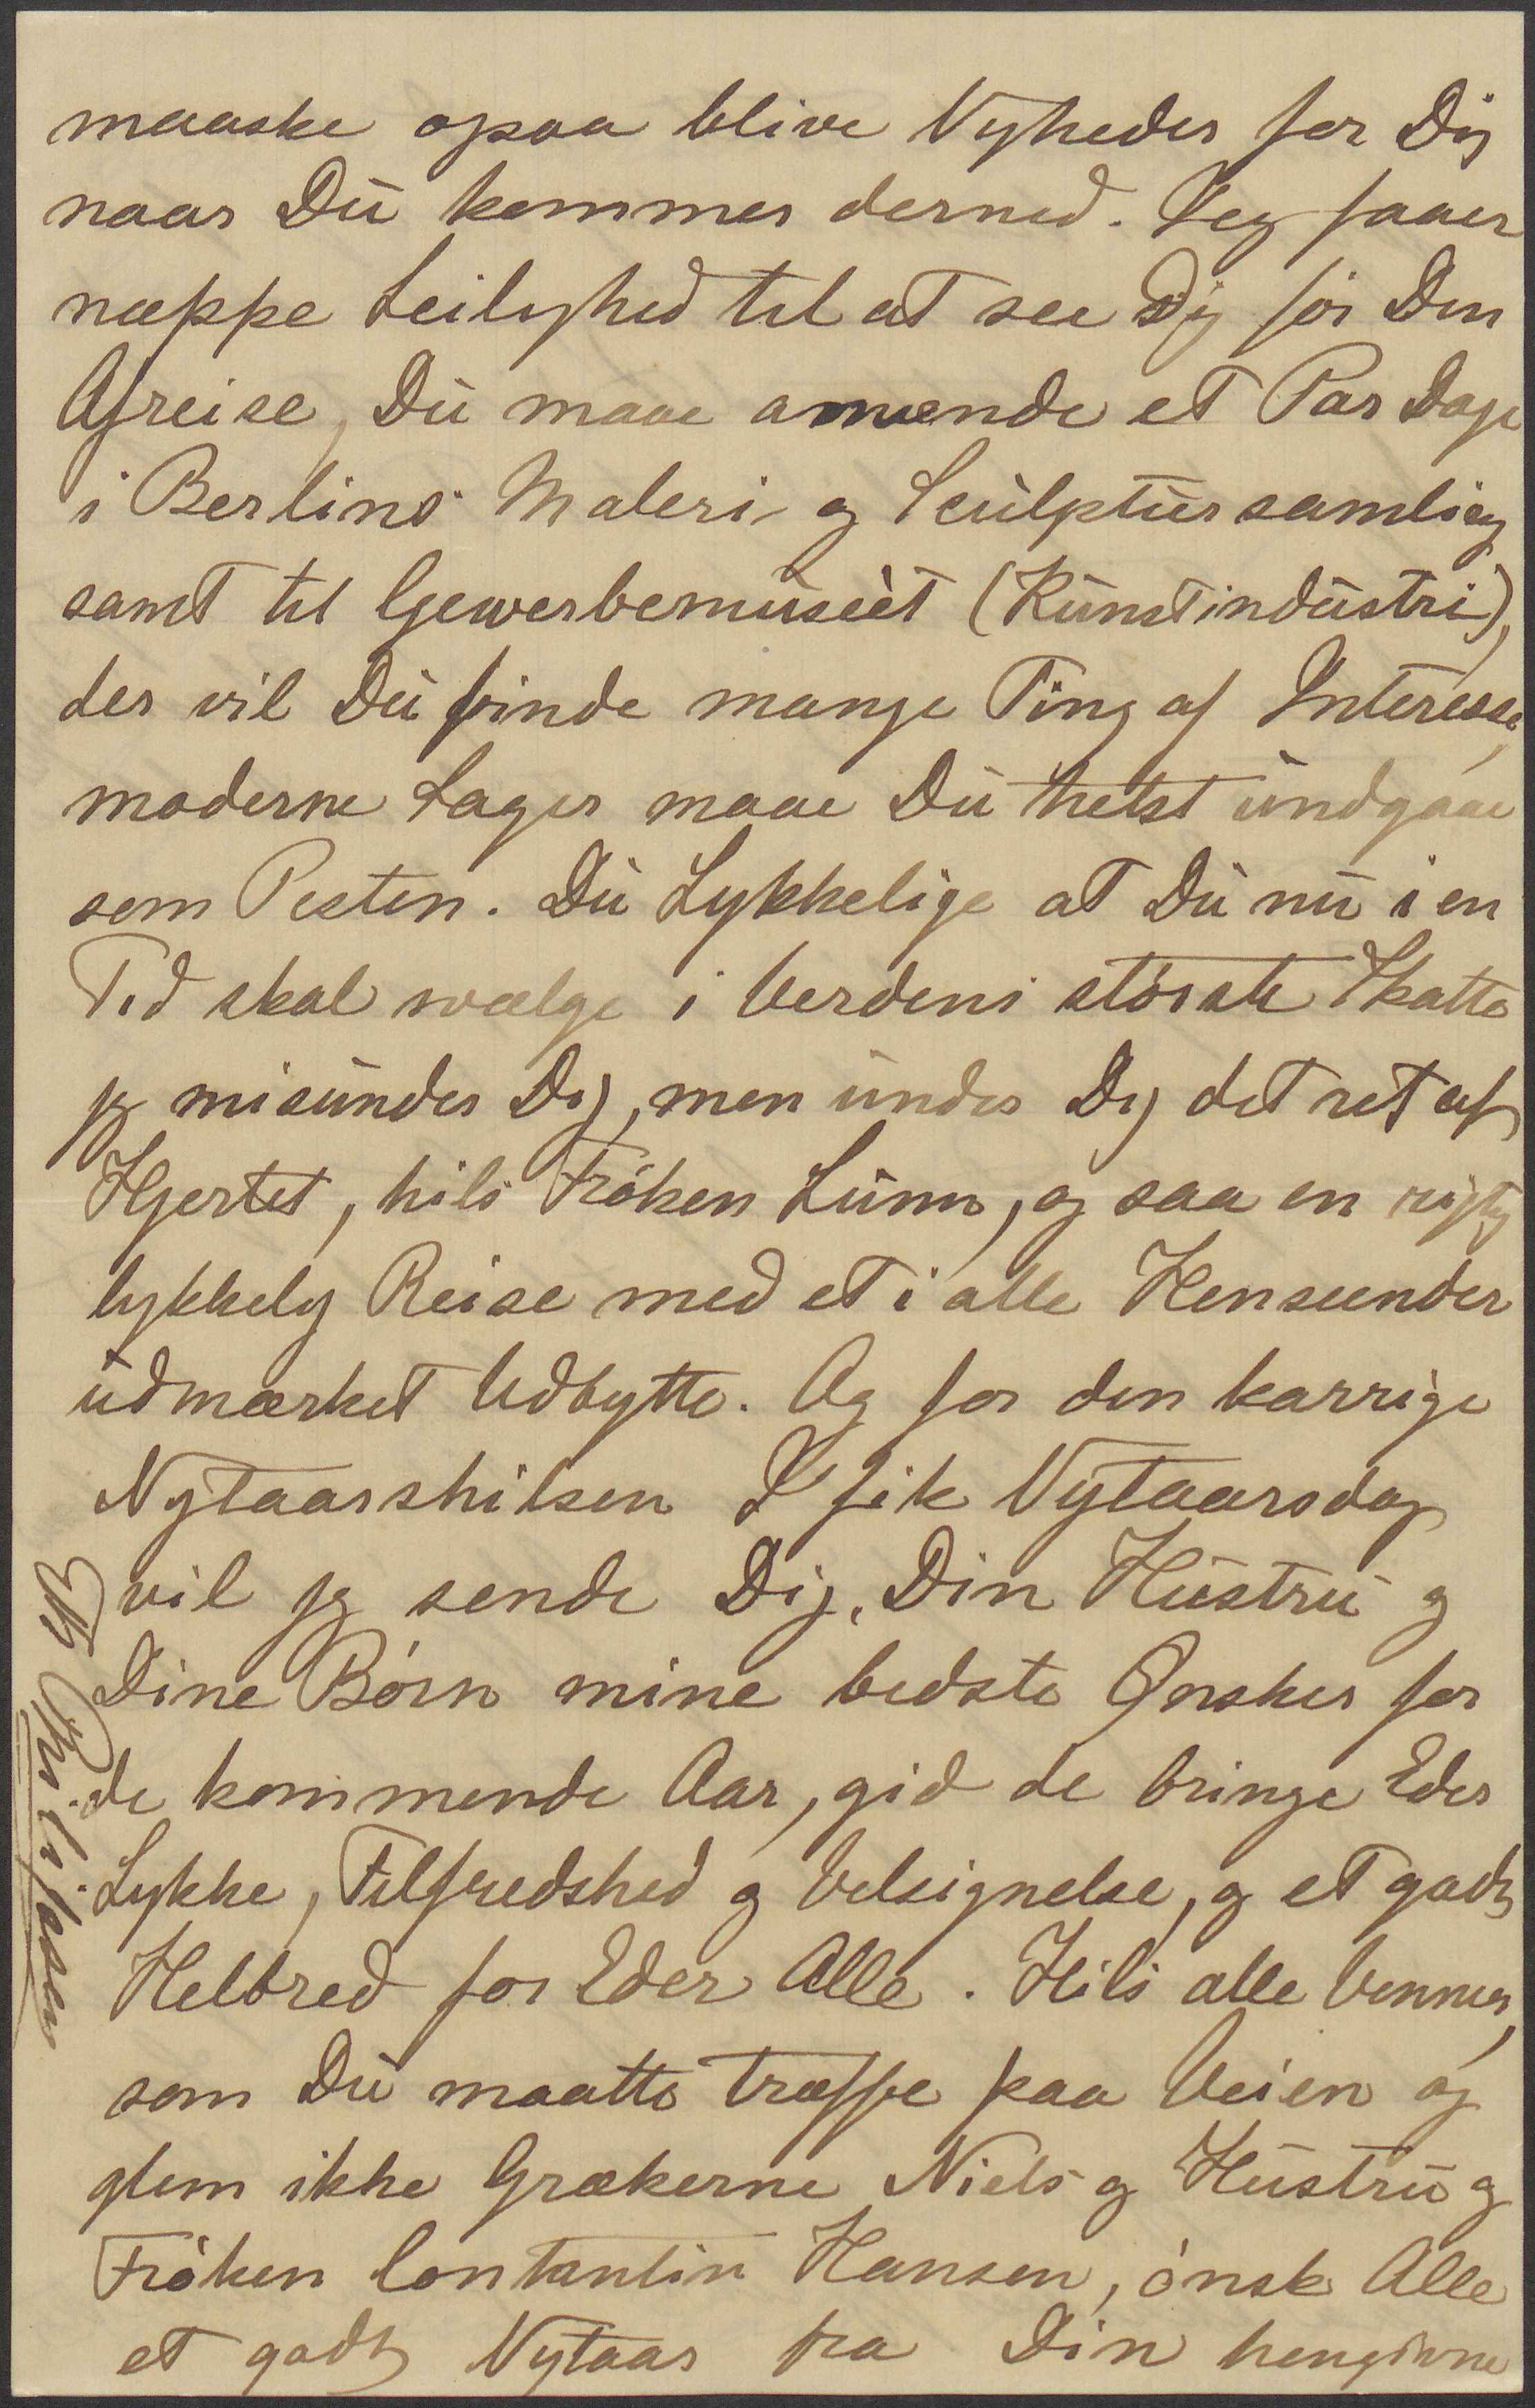 maaske ogsaa blive Nyheder for Dig
naar Du kommer derned. Jeg faaer
næppe Leilighed til at see Dig før Din
Afreise, Du maae anvende et Par Dage
i Berlins Maleri- og Sculptursamling
samt til Gewerbemuseèt (Kunstindustri),
der vil Du finde mange Ting af Interesse,
moderne Sager maae Du helst undgaae
som Pesten. Du Lykkelige at Du nu i en
Tid skal svælge i Verdens største Skatte
jeg misunder Dig, men under Dig det ret af
Hjertet, hils Frøken Lunn, og saa en rigtig
lykkelig Reise med et i alle Henseender
udmærket Udbytte. Og for den karrige
Nytaarshilsen I fik Nytaarsdag
vil jeg sende Dig, Din Hustru og
Dine Børn mine bedste Ønsker for
de kommende Aar, gid de bringe Eder
Lykke, Tilfredshed og Velsignelse, og et godt
Helbred for Eder Alle. Hils alle Venner,
som Du maatte træffe paa Veien og
glem ikke Grækerne Niels og Hustru og
Frøken Contantin Hansen, ønsk Alle
et godt Nytaar fra Din hengivne
Th Philipsen